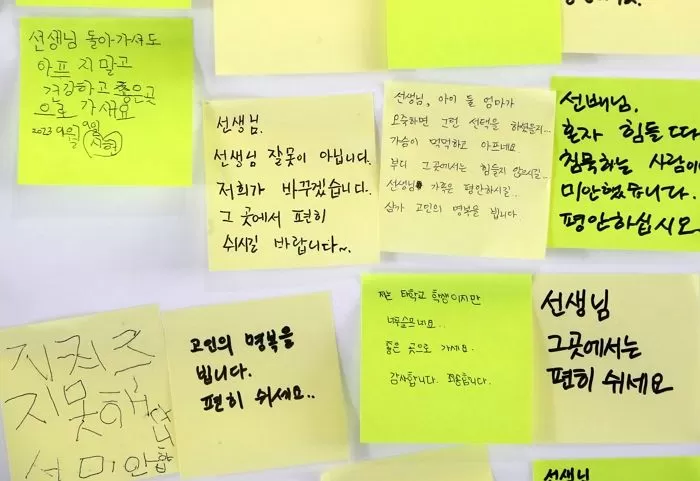 선생님 돌아가셔도
아프지말고
건강하고 좋은곳
으로 가세요
2023 9월 9일
선생님.
선생님 잘못이 아닙니다.
저희가 바꾸겠습니다.
그 곳에서 편히
쉬시길 바랍니다~.
선생님, 아이 둘 엄마가
오죽하면 그런 선택을 하셨을지...
가슴이 먹먹하고 아프네요
부디 그곳에서는 힘들지 않으시길..
선생님 가족은 평안하시길..
삼가 고인의 명복을 빕니다
선배님.
혼자 힘들 때
침묵하는 사람이
미안했습니다.
평안하십시오
지켜주
지못해
서 미안합니다
고인의 명복을
빕니다.
편히 쉬세요..
저는 타학교 학생이지만
너무슬프네요..
좋은 곳으로 가세요.
감사합니다. 죄송합니다.
선생님
그곳에서는
편히 쉬세요
선생님